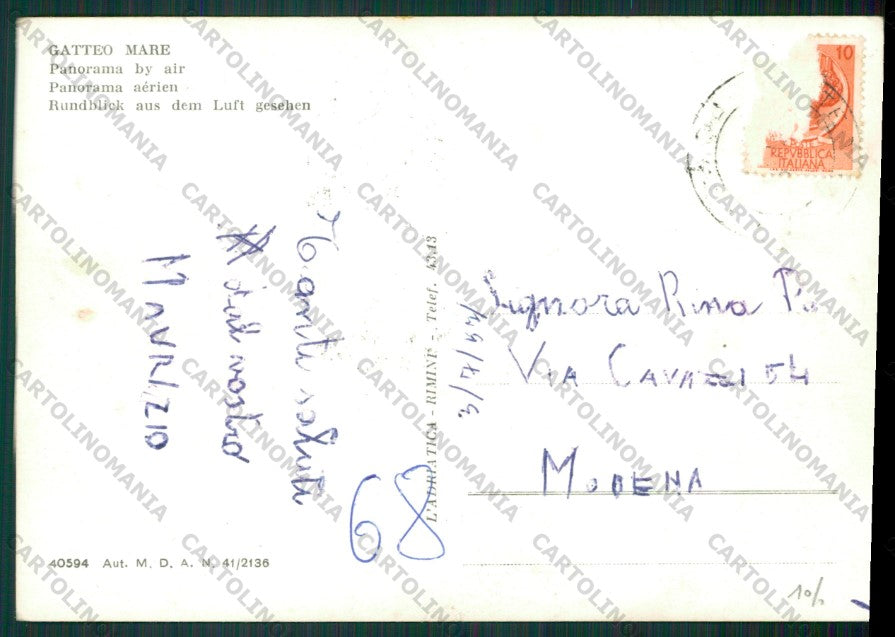 GATTEO MARE
Panorama by air
Panorama aérien
Rundblick aus dem Luft gesehen
10
REPVBBLICA
ITALIANA
Tanti saluti
dal nostro
MAURIZIO
68
L'ADRIATICA - RIMINI - Telef. 4343
Signora Rina
VIA CAVAZZI 54
MODENA
40594 Aut. M. D. A. N. 41/2136
10/
CARTOLINOMANIA